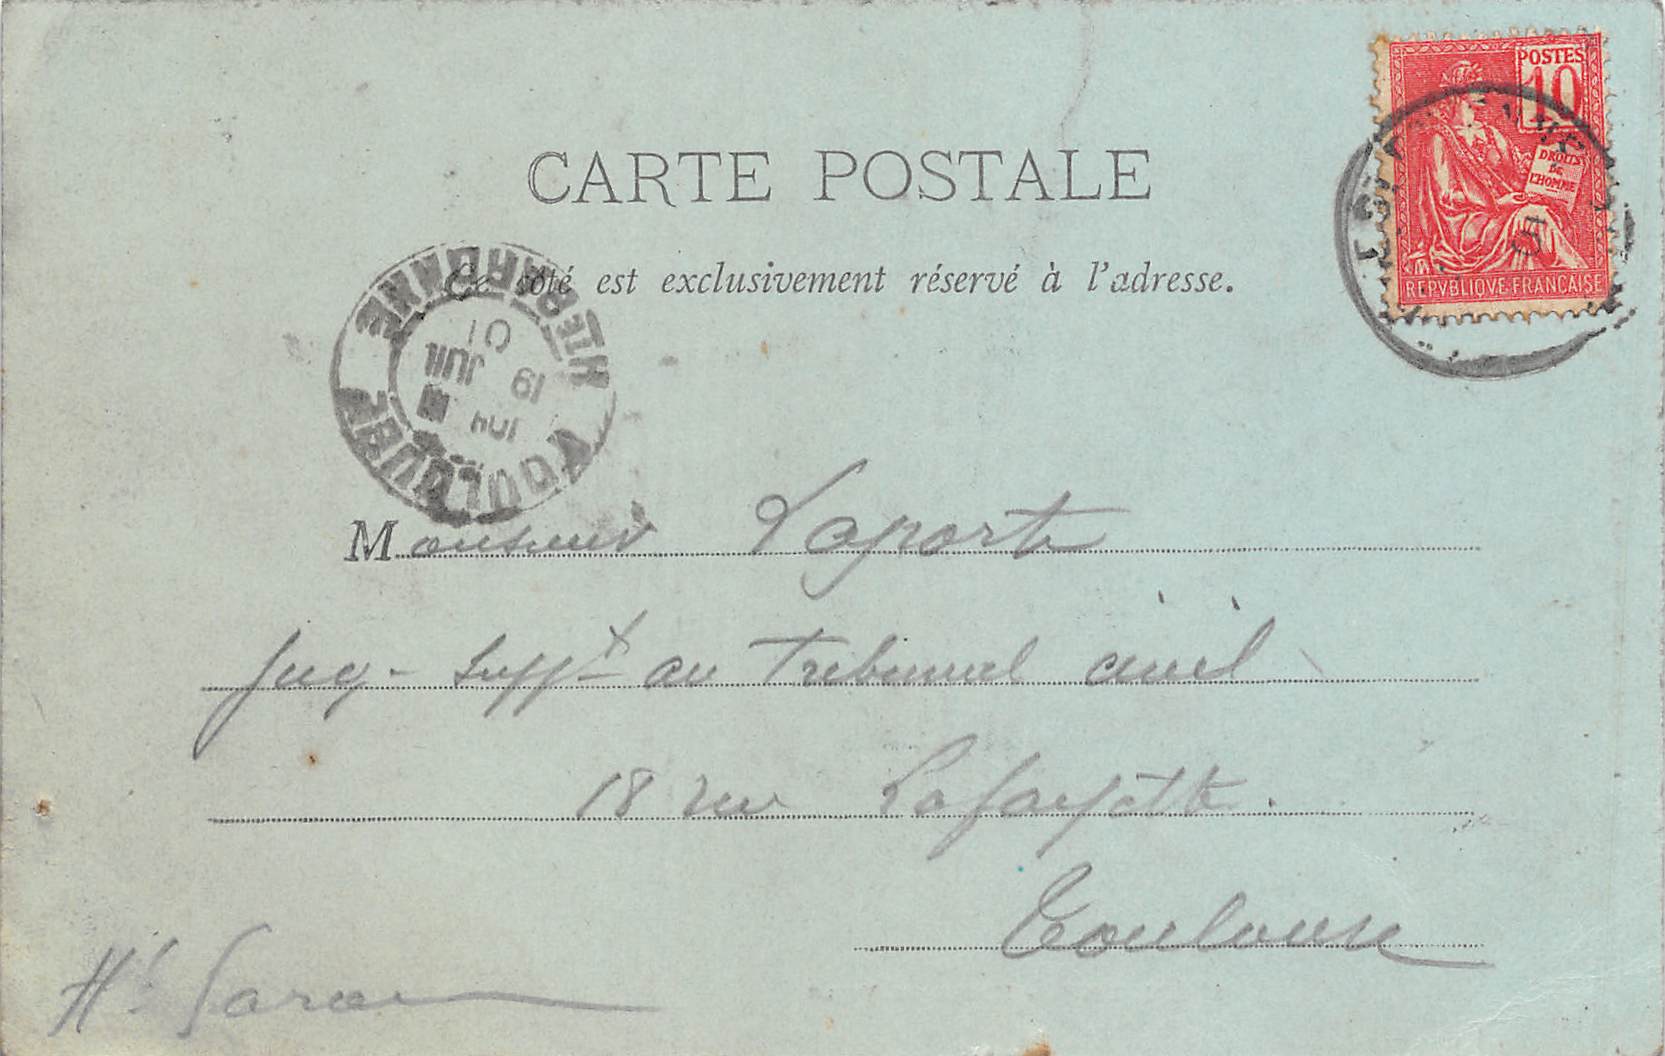 POSTES
10
DROITS
DE
L'HOMME
REPVBLIQVE FRANCAISE
CARTE POSTALE
Ce côté est exclusivement réservé à l'adresse.
TOULOUSE
Hte GARONNE
19 JUIL
01
Monsieur Laporte
Juge Suppt au Tribunal civil
18 rue Lafayette.
Toulouse
Hte Garonne